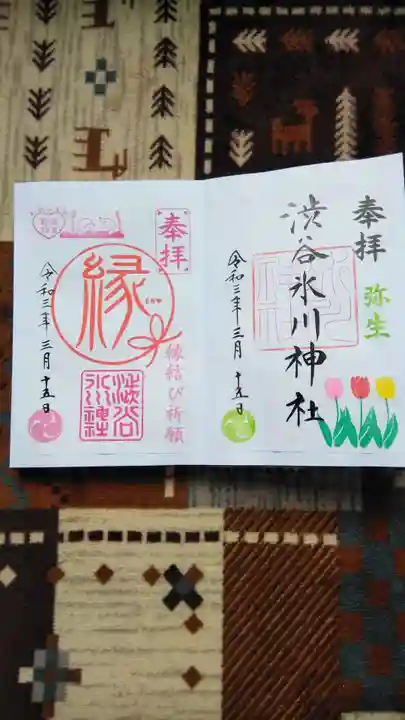 奉拝
弥生
渋谷氷川神社
令和三年三月十五日
奉拝
縁結び祈願
縁
渋谷
氷川神社
令和三年三月十五日